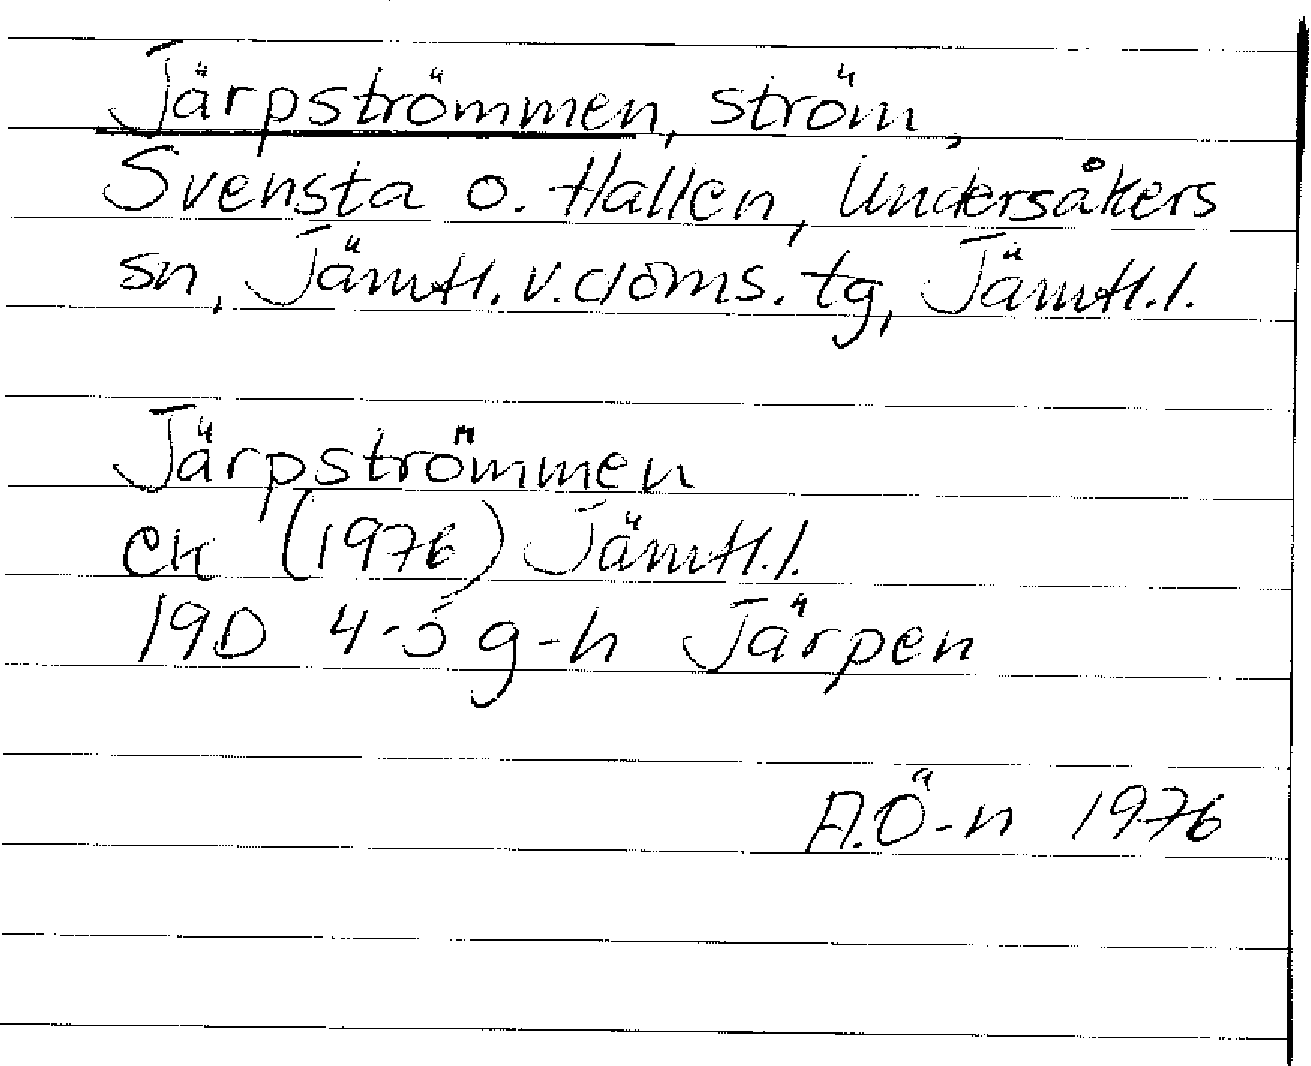 Järpströmmen, ström,
Svensta o. Hallen, Undersåkers
sn, Jämtl. v. doms. tg, Jämtl. l.
Järpströmmen
ek (1976) Jämtl. l.
19D 4-5 g-h Järpen
A.Ö-n 1976